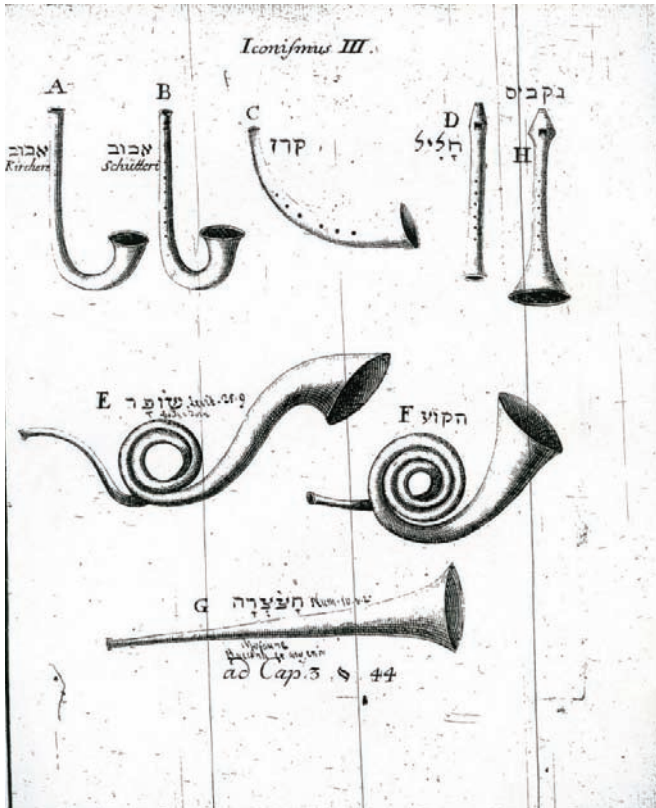 Iconismus III.
A
אבוב
Kircheri
B
אבוב
Schütteri
C
קרז
D
חָלִיל
נקביס
H
E שׁוֹפָר Levit. 25.9
F הקוֹע
G חֲצֹצְרָה Num.
ad Cap. 3 . § . 44